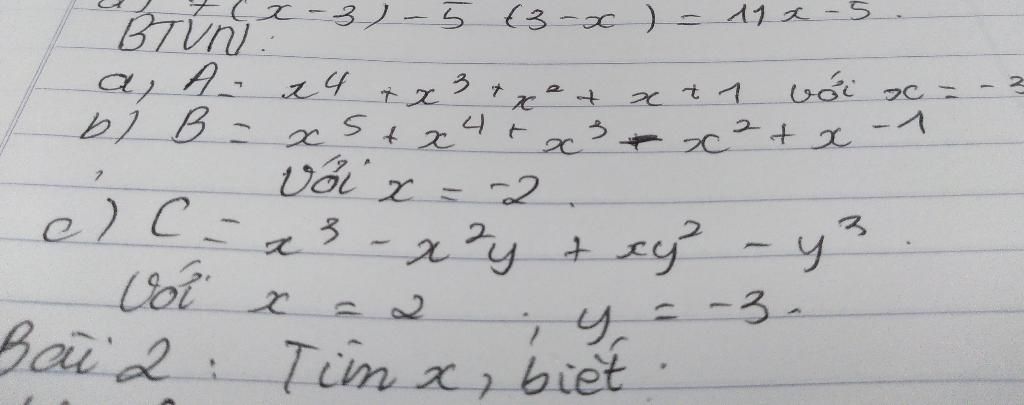 7(x-3)-5(3-x) = 11x-5.
BTVN:
a, A = x⁴ + x³ + x² + x + 1 với x = -3
b) B = x⁵ + x⁴ + x³ - x² + x - 1
với x = -2.
c) C = x³ - x²y + xy² - y³.
Với x = 2 ; y = -3.
Bài 2: Tìm x, biết: